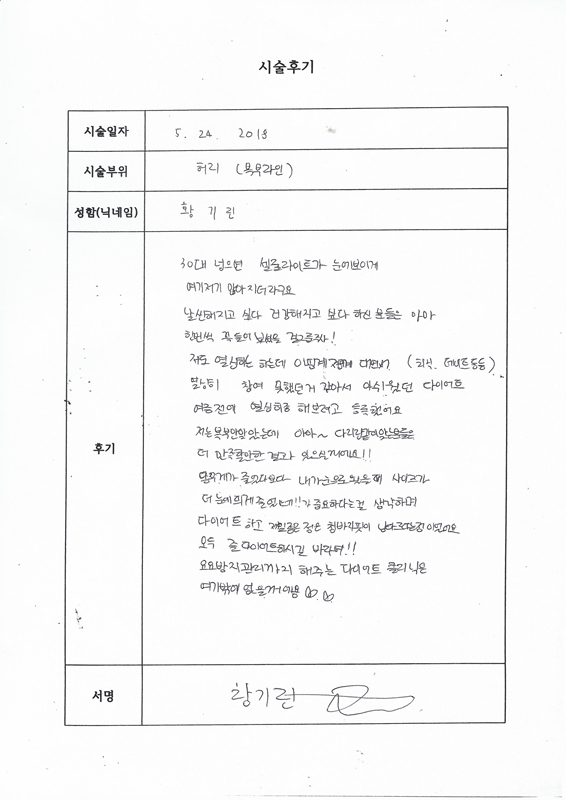 시술후기
시술일자 5. 24. 2018
시술부위 허리 (복부라인)
성함(닉네임) 황기린
후기
30대 넘으면 셀룰라이트가 눈에보이게
여기저기 많아지더라구요
날씬해지고 싶다 건강해지고 싶다 하신 분들은 아마
한번씩
저도 열심히는 하는데 (회식, 데이트 등등)
참여 못했던거 같아서 아쉬웠던 다이어트
여름전에 열심히 해보려고 등록했어요
저는 복부만 받았는데 아마~ 다리랑 같이 받는분들은
더 만족할만한 결과 있으실꺼에요!!
몸무게가 줄었다보다 내가 눈으로 봤을때 사이즈가
더 눈에띄게 줄었는게!! 가 중요하다는걸 생각하며
다이어트 하고 제일좋은점은 청바지핏이 남다르다는점이었어요
모두 즐다이어트하시길 바라며!!
요요방지관리까지 해주는 다이어트 클리닉은
여기밖에 없을꺼에용
서명 황기린